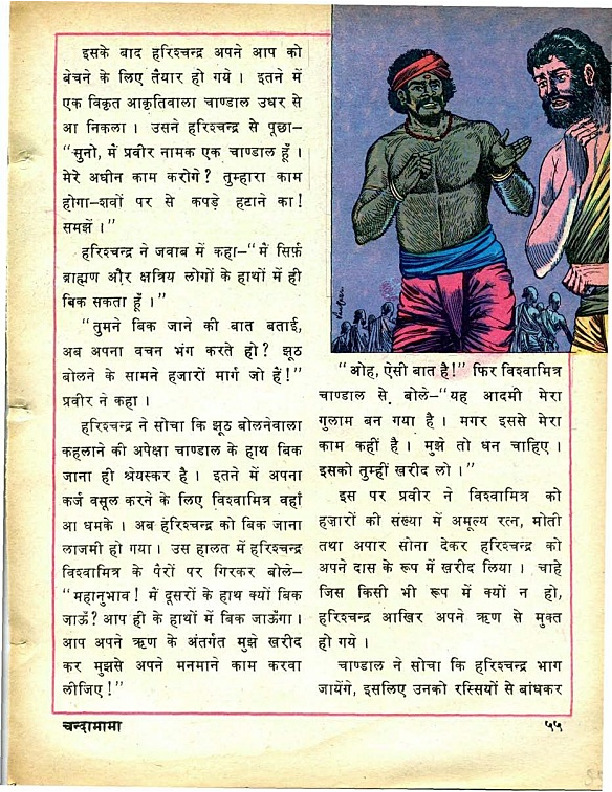 इसके बाद हरिश्चन्द्र अपने आप को
बेचने के लिए तैयार हो गये । इतने में
एक विकृत आकृतिवाला चाण्डाल उधर से
आ निकला । उसने हरिश्चन्द्र से पूछा–
“सुनो, मैं प्रवीर नामक एक चाण्डाल हूँ ।
मेरे अधीन काम करोगे? तुम्हारा काम
होगा–शवों पर से कपड़े हटाने का!
समझे ।”
हरिश्चन्द्र ने जवाब में कहा–“मैं सिर्फ़
ब्राह्मण और क्षत्रिय लोगों के हाथों में ही
बिक सकता हूँ ।”
“तुमने बिक जाने की बात बताई,
अब अपना वचन भंग करते हो? झूठ
बोलने के सामने हजारों मार्ग जो हैं!”
प्रवीर ने कहा ।
हरिश्चन्द्र ने सोचा कि झूठ बोलनेवाला
कहलाने की अपेक्षा चाण्डाल के हाथ बिक
जाना ही श्रेयस्कर है । इतने में अपना
कर्ज वसूल करने के लिए विश्वामित्र वहाँ
आ धमके । अब हरिश्चन्द्र को बिक जाना
लाजमी हो गया । उस हालत में हरिश्चन्द्र
विश्वामित्र के पैरों पर गिरकर बोले–
“महानुभाव! मैं दूसरों के हाथ क्यों बिक
जाऊँ? आप ही के हाथों में बिक जाऊँगा ।
आप अपने ऋण के अंतर्गत मुझे खरीद
कर मुझसे अपने मनमाने काम करवा
लीजिए!”
“ओह, ऐसी बात है!” फिर विश्वामित्र
चाण्डाल से बोले–“यह आदमी मेरा
गुलाम बन गया है । मगर इससे मेरा
काम कहीं है । मुझे तो धन चाहिए ।
इसको तुम्हीं खरीद लो ।”
इस पर प्रवीर ने विश्वामित्र को
हजारों की संख्या में अमूल्य रत्न, मोती
तथा अपार सोना देकर हरिश्चन्द्र को
अपने दास के रूप में खरीद लिया । चाहे
जिस किसी भी रूप में क्यों न हो,
हरिश्चन्द्र आखिर अपने ऋण से मुक्त
हो गये ।
चाण्डाल ने सोचा कि हरिश्चन्द्र भाग
जायेंगे, इसलिए उनको रस्सियों से बांधकर
चन्दामामा
५५